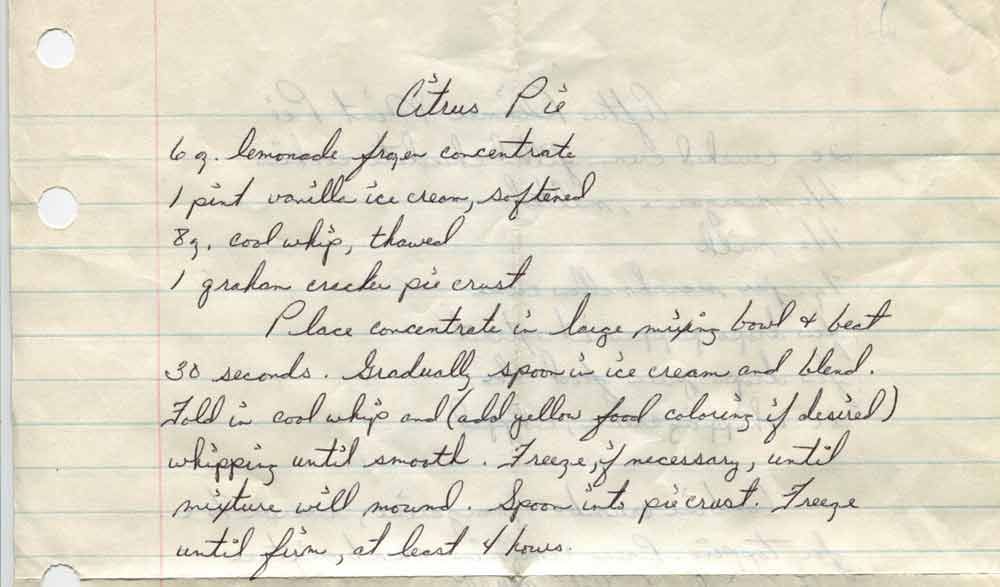 Citrus Pie
6 oz. lemonade frozen concentrate
1 pint vanilla ice cream, softened
8 oz. cool whip, thawed
1 graham cracker pie crust
Place concentrate in large mixing bowl & beat
30 seconds. Gradually spoon in ice cream and blend.
Fold in cool whip and (add yellow food coloring if desired)
whipping until smooth. Freeze, if necessary, until
mixture will mound. Spoon into pie crust. Freeze
until firm, at least 4 hours.